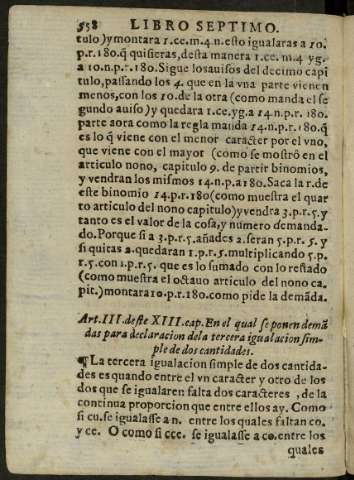 558 LIBRO SEPTIMO.
tulo) y montara 1.ce.m.4.n. esto igualaras a 10.
p.r.180.q̃ quisieras, desta manera 1.ce.m.4 yg.
a 10.n.p.r.180. Sigue los auisos del decimo capi
tulo, passando los 4. que en la vna parte vienen
menos, con los 10. de la otra (como manda el se
gundo auiso) y quedara 1.ce.yg.a 14.n.p.r.180.
parte aora como la regla manda 14.n.p.r.180.q̃
es lo q̃ viene con el menor caracter por el vno,
que viene con el mayor (como se mostrò en el
articulo nono, capitulo 9. de partir binomios,
y vendran los mismos 14.n.p.a180. Saca la r.de
este binomio 14.p.r.180 (como muestra el quar
to articulo del nono capitulo) y vendra 3.p.r.5.y
tanto es el valor de la cosa, y numero demanda-
do. Porque si a 3.p.r.5. añades 2. seran 5.p.r.5. y
si quitas 2. quedaran 1.p.r.5. multiplicando 5.p.
r.5. con 1.p.r.5. que es lo sumado con lo restado
(como muestra el octauo articulo del nono ca.
pit.) montara 10.p.r.180. como pide la demãda.
Art. III. deste XIII. cap. En el qual se ponen demã
das para declaracion dela tercera igualacion sim-
ple de dos cantidades.
¶ La tercera igualacion simple de dos cantida-
des es quando entre el vn caracter y otro de los
dos que se igualaren falta dos caracteres, de la
continua proporcion que entre ellos ay. Como
si cu. se igualasse a n. entre los quales faltan co.
y ce. O como si cce. se igualasse a co. entre los
quales